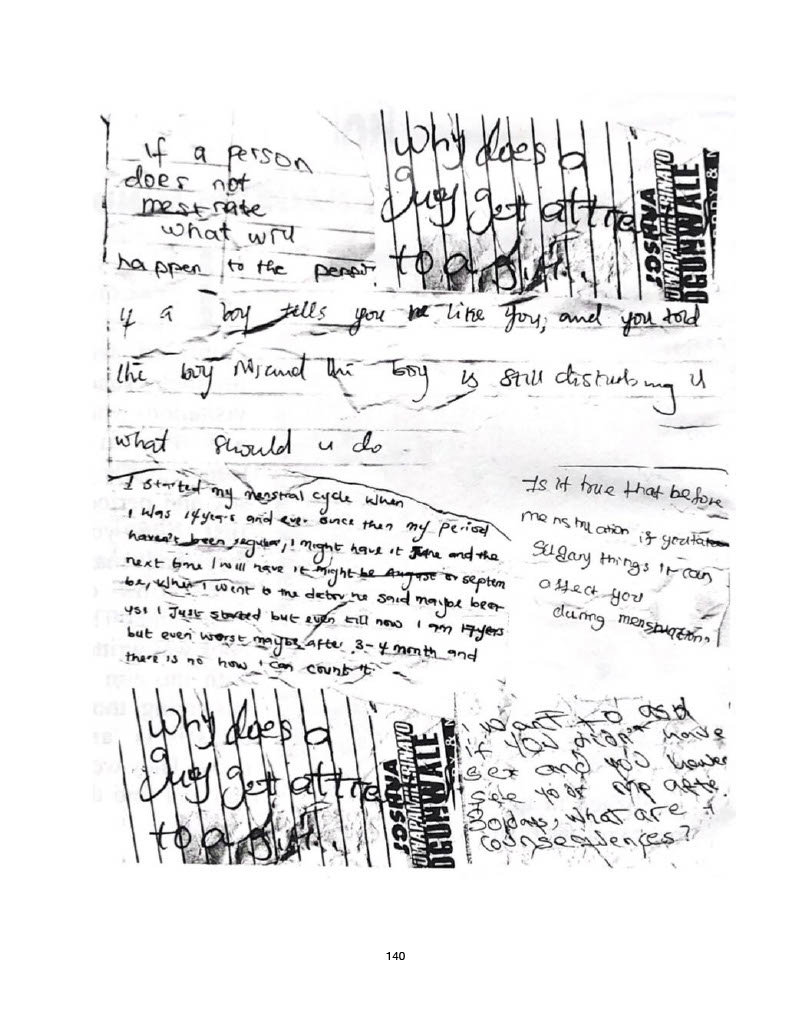 if a person
does not
mestrate
what will
happen to the person
why does a
guy get attra
to a girl.
JOSHUA
OGUNWALE
if a boy tells you he like you, and you told
the boy No, and the boy is still disturbing u
what should u do
I started my menstral cycle when
i was 14years and ever since then my period
haven't been regular, i might have it June and the
next time I will have it might be August or septem
be, when i went to the doctor he said maybe becr
yse i just started but even till now i am 17yers
but even worst maybe after 3-4 month and
there is no how i can count it
Is it true that before
menstruation if you take
sugary things it can
affect you
during menstruation,
why does a
guy get attra
to a girl.
JOSHUA
OGUNWALE
i want to ask
if you didn't have
sex and you
see your mp afte
days, what are
counsesuences?
140